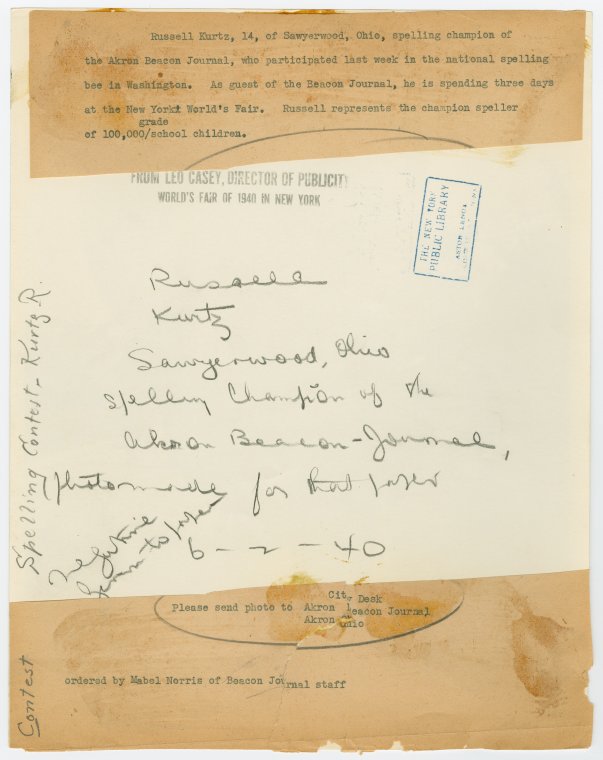 Russell Kurtz, 14, of Sawyerwood, Ohio, spelling champion of
the Akron Beacon Journal, who participated last week in the national spelling
bee in Washington. As guest of the Beacon Journal, he is spending three days
at the New York World's Fair. Russell represents the champion speller
grade
of 100,000/school children.
FROM LEO CASEY, DIRECTOR OF PUBLICITY
WORLD'S FAIR OF 1940 IN NEW YORK
THE NEW YORK
PUBLIC LIBRARY
ASTOR LENOX
Russell
Kurtz
Sawyerwood, Ohio
Spelling Champion of the
Akron Beacon-Journal,
photo made for that paper
Negative
given to paper
6-2-40
Spelling Contest - Kurtz R.
City Desk
Please send photo to Akron Beacon Journal
Akron Ohio
ordered by Mabel Norris of Beacon Journal staff
Contest